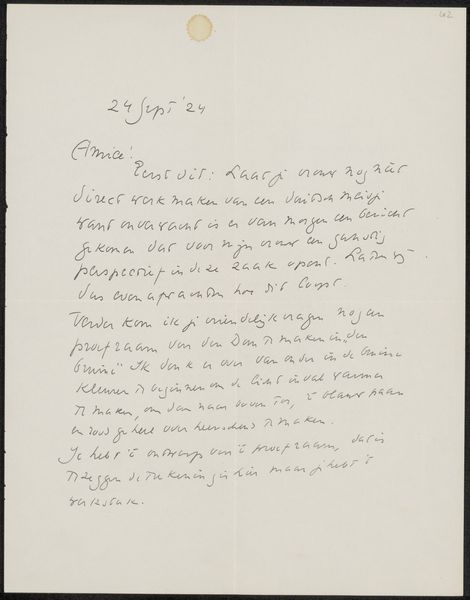 42
24 Sept '24
Amice!
Eerst dit: Laat je vrouw nog niet
direct werk maken van een duitsch meisje
want onverwacht is er van morgen een bericht
gekomen dat voor mijn vrouw een gunstig
perspectief in deze zaak opent. Laten wij
dus even afwachten hoe dit loopt.
Verder kom ik je vriendelijk vragen nog een
proefraam voor den Dom te maken in „den
bruine" Ik denk er over van onder in de bruine
kleuren te beginnen om de lichtinval warmer
te maken, om dan naar boven toe, 't blauw paars
en rood geheel over heerschend te maken.
Je hebt 't ontwerp van 't proefraam, dat is
te zeggen de teekening is hier maar je hebt 't
werkstuk.